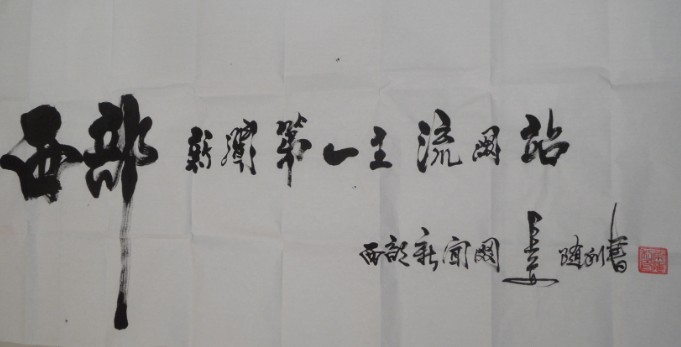 西部新闻第一主流网站
西部新闻网 随刘書